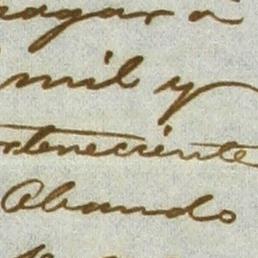 pagar á
mil y
rteneciente
Abando